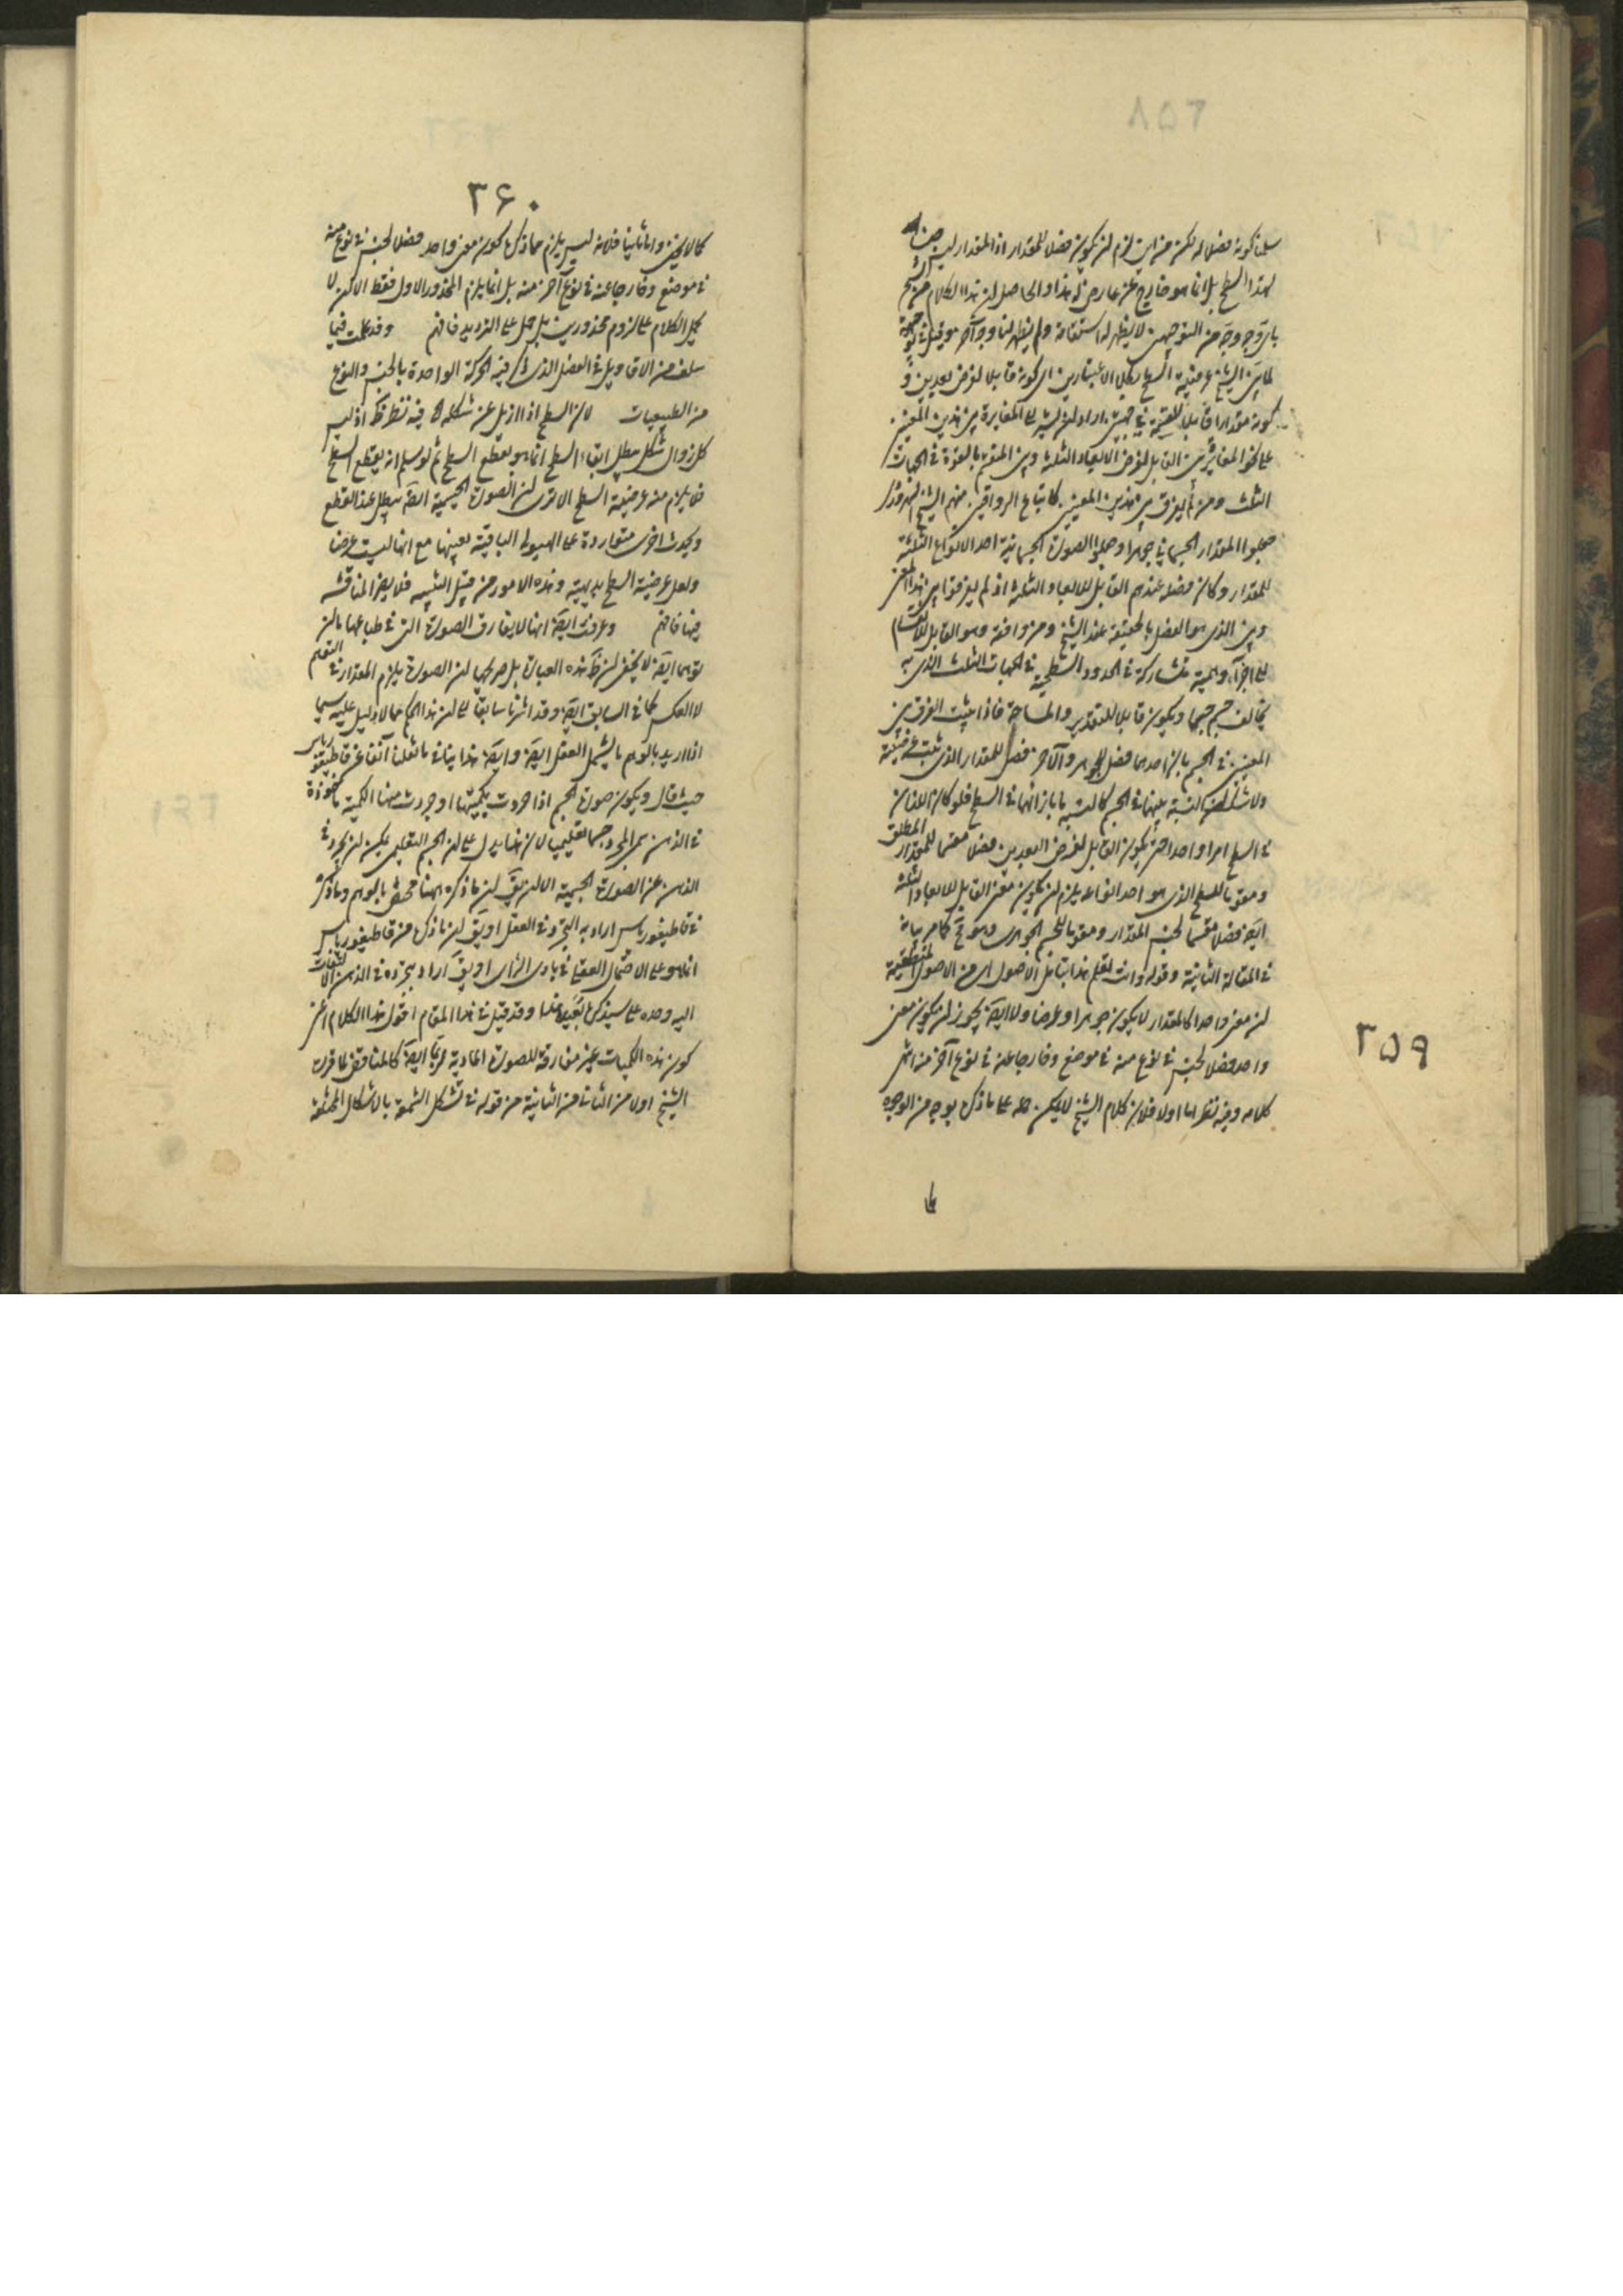 سلمنا كونه فصلا له لكن من اين لزم ان يكون فصلا للمقدار اذ المقدار ليس جنسا
لهذا السطح بل انما هو خارج عن عارض له هذا والحاصل ان هذا الكلام من الشيخ
باى وجه وجه من التوجيهين لا يظهر له استقامة ولم يظهر لنا وجه آخر
الشيخ عرضية السطح بكلى الاعتبارين اى كونه قابلا لفرض بعدين و
كونه مقدارا قابلا للقسمة فى جهتين اراد ان يشير الى المغايرة بين هذين المعنيين
على نحو المغايرة بين القابل لفرض الابعاد الثلثة وبين المنقسم بالقوة فى الجهات
الثلث ومن لم يفرق بين هذين المعنيين كاتباع الرواقيين منهم الشيخ السهروردى
جعلوا المقدار الجسمانى جوهرا وجعلوا الصورة الجسمانية احد الانواع الثلثة
للمقدار وكان فصله عندهم القابل للابعاد الثلثة اذ لم يفرقوا بين هذا المعنى
وبين الذى هو الفصل بالحقيقة عند الشيخ ومن وافقه وهو القابل للانقسام
الى اجزاء وهمية متشاركة فى الحدود السطحية فى الجهات الثلث الذى به
يخالف جسم جسما ويكون قابلا للتقدير والمساحة فاذا يثبت الفرق بين
المعنيين فى الجسم بان احدهما فصل للجوهر والآخر فصل للمقدار الذى ثبت عرضيته
ولا شك ان النسبة بينهما فى الجسم كالنسبة ما بازائهما فى السطح فلو كان الاثنان
فى السطح امرا واحدا حتى يكون القابل لفرض البعدين فصلا مقسما للمقدار المطلق
ومقوما للسطح الذى هو احد انواعه يلزم ان يكون معنى القابل للابعاد الثلثة
ايضا فصلا مقسما لجنس المقدار ومقوما للجسم الجوهرى وهو مح كما مر بيانه
فى المقالة الثانية وقوله وانت تعلم هذا بتامل الاصول اى من الاصول المنطقية
ان معنى واحدا كالمقدار لا يكون جوهرا وعرضا ولا ايضا يجوز ان يكون معنى
واحد فصلا لجنس فى نوع منه فى موضع وخارجا عنه فى نوع آخر منه انتهى
كلامه وفيه نظر اما اولا فلان كلام الشيخ لا يمكن حمله على ما ذكره بوجه من الوجوه
٣٥٩
٣٦٠
كما لا يخفى واما ثانيا فلانه ليس يلزم مما ذكره كون معنى واحد فصلا لجنس فى نوع منه
فى موضع وخارجا عنه فى نوع آخر منه بل انما يلزم المحذور الاول فقط الا ان لا
يحمل الكلام على لزوم محذورين بل حمل على الترديد فافهم وقد علمت فيما
سلف من الاقاويل فى الفصل الذى ذكر فيه الحركة الواحدة بالجنس والنوع
من الطبيعيات لان السطح اذا ازيل عن شكله فيه نظر ظ اذ ليس
كل زوال شكل يبطل اتصال السطح انما هو بقطع السطح ثم لو سلم انه يقطع السطح
فلا يلزم منه عرضية السطح الا ترى ان الصورة الجسمية ايضا يبطل عند القطع
ويحدث اخرى متواردة على الهيولى الباقية بعينها مع انها ليست عرضا
ولعل عرضية السطح بديهية وهذه الامور من قبيل التنبيه فلا يضر المناقشة
فيها فافهم وعرفت ايضا انها لا يفارق الصورة التى فى طباعها مالن
توهما ايضا لا يخفى ان ظ هذه العبارة بل صريحها ان الصورة يلزم المقدار فى التوهم
لا العكس كما فى السابق ايضا وقد اشرنا سابقا الى ان هذا الحكم مما لا دليل عليه سيما
اذا اريد بالوهم ما يشمل العقل ايضا وايضا هذا ينافى ما نقلنا آنفا عن قاطيغورياس
حيث قال ويكون صورة الجسم اذا جردت بكميتها او جردت منها الكمية ماخوذة
فى الذهن سمى المجرد جسما تعليميا لان هذا يدل على ان الجسم التعليمى يمكن ان يجرد فى
الذهن عن الصورة الجسمية الا ان يقال ان ما ذكره ههنا مختص بالوهم وما ذكره
فى قاطيغورياس اراد به التجرد فى العقل او يقال ان ما ذكره من قاطيغورياس
انما هو على الاحتمال العقلى فى بادى الراى او يقال اراد بتجرده فى الذهن الالتفات
اليه وحده على ما سيذكره بعيد هذا وقد قيل فى هذا المقام اقول هذا الكلام اعنى
كون هذه الكميات غير مفارقة للصورة المادية توهما ايضا كالمناقض لما قررت
الشيخ اولا من الثانى من الثانية من قوله فى تشكل الشمعة بالاشكال المختلفة